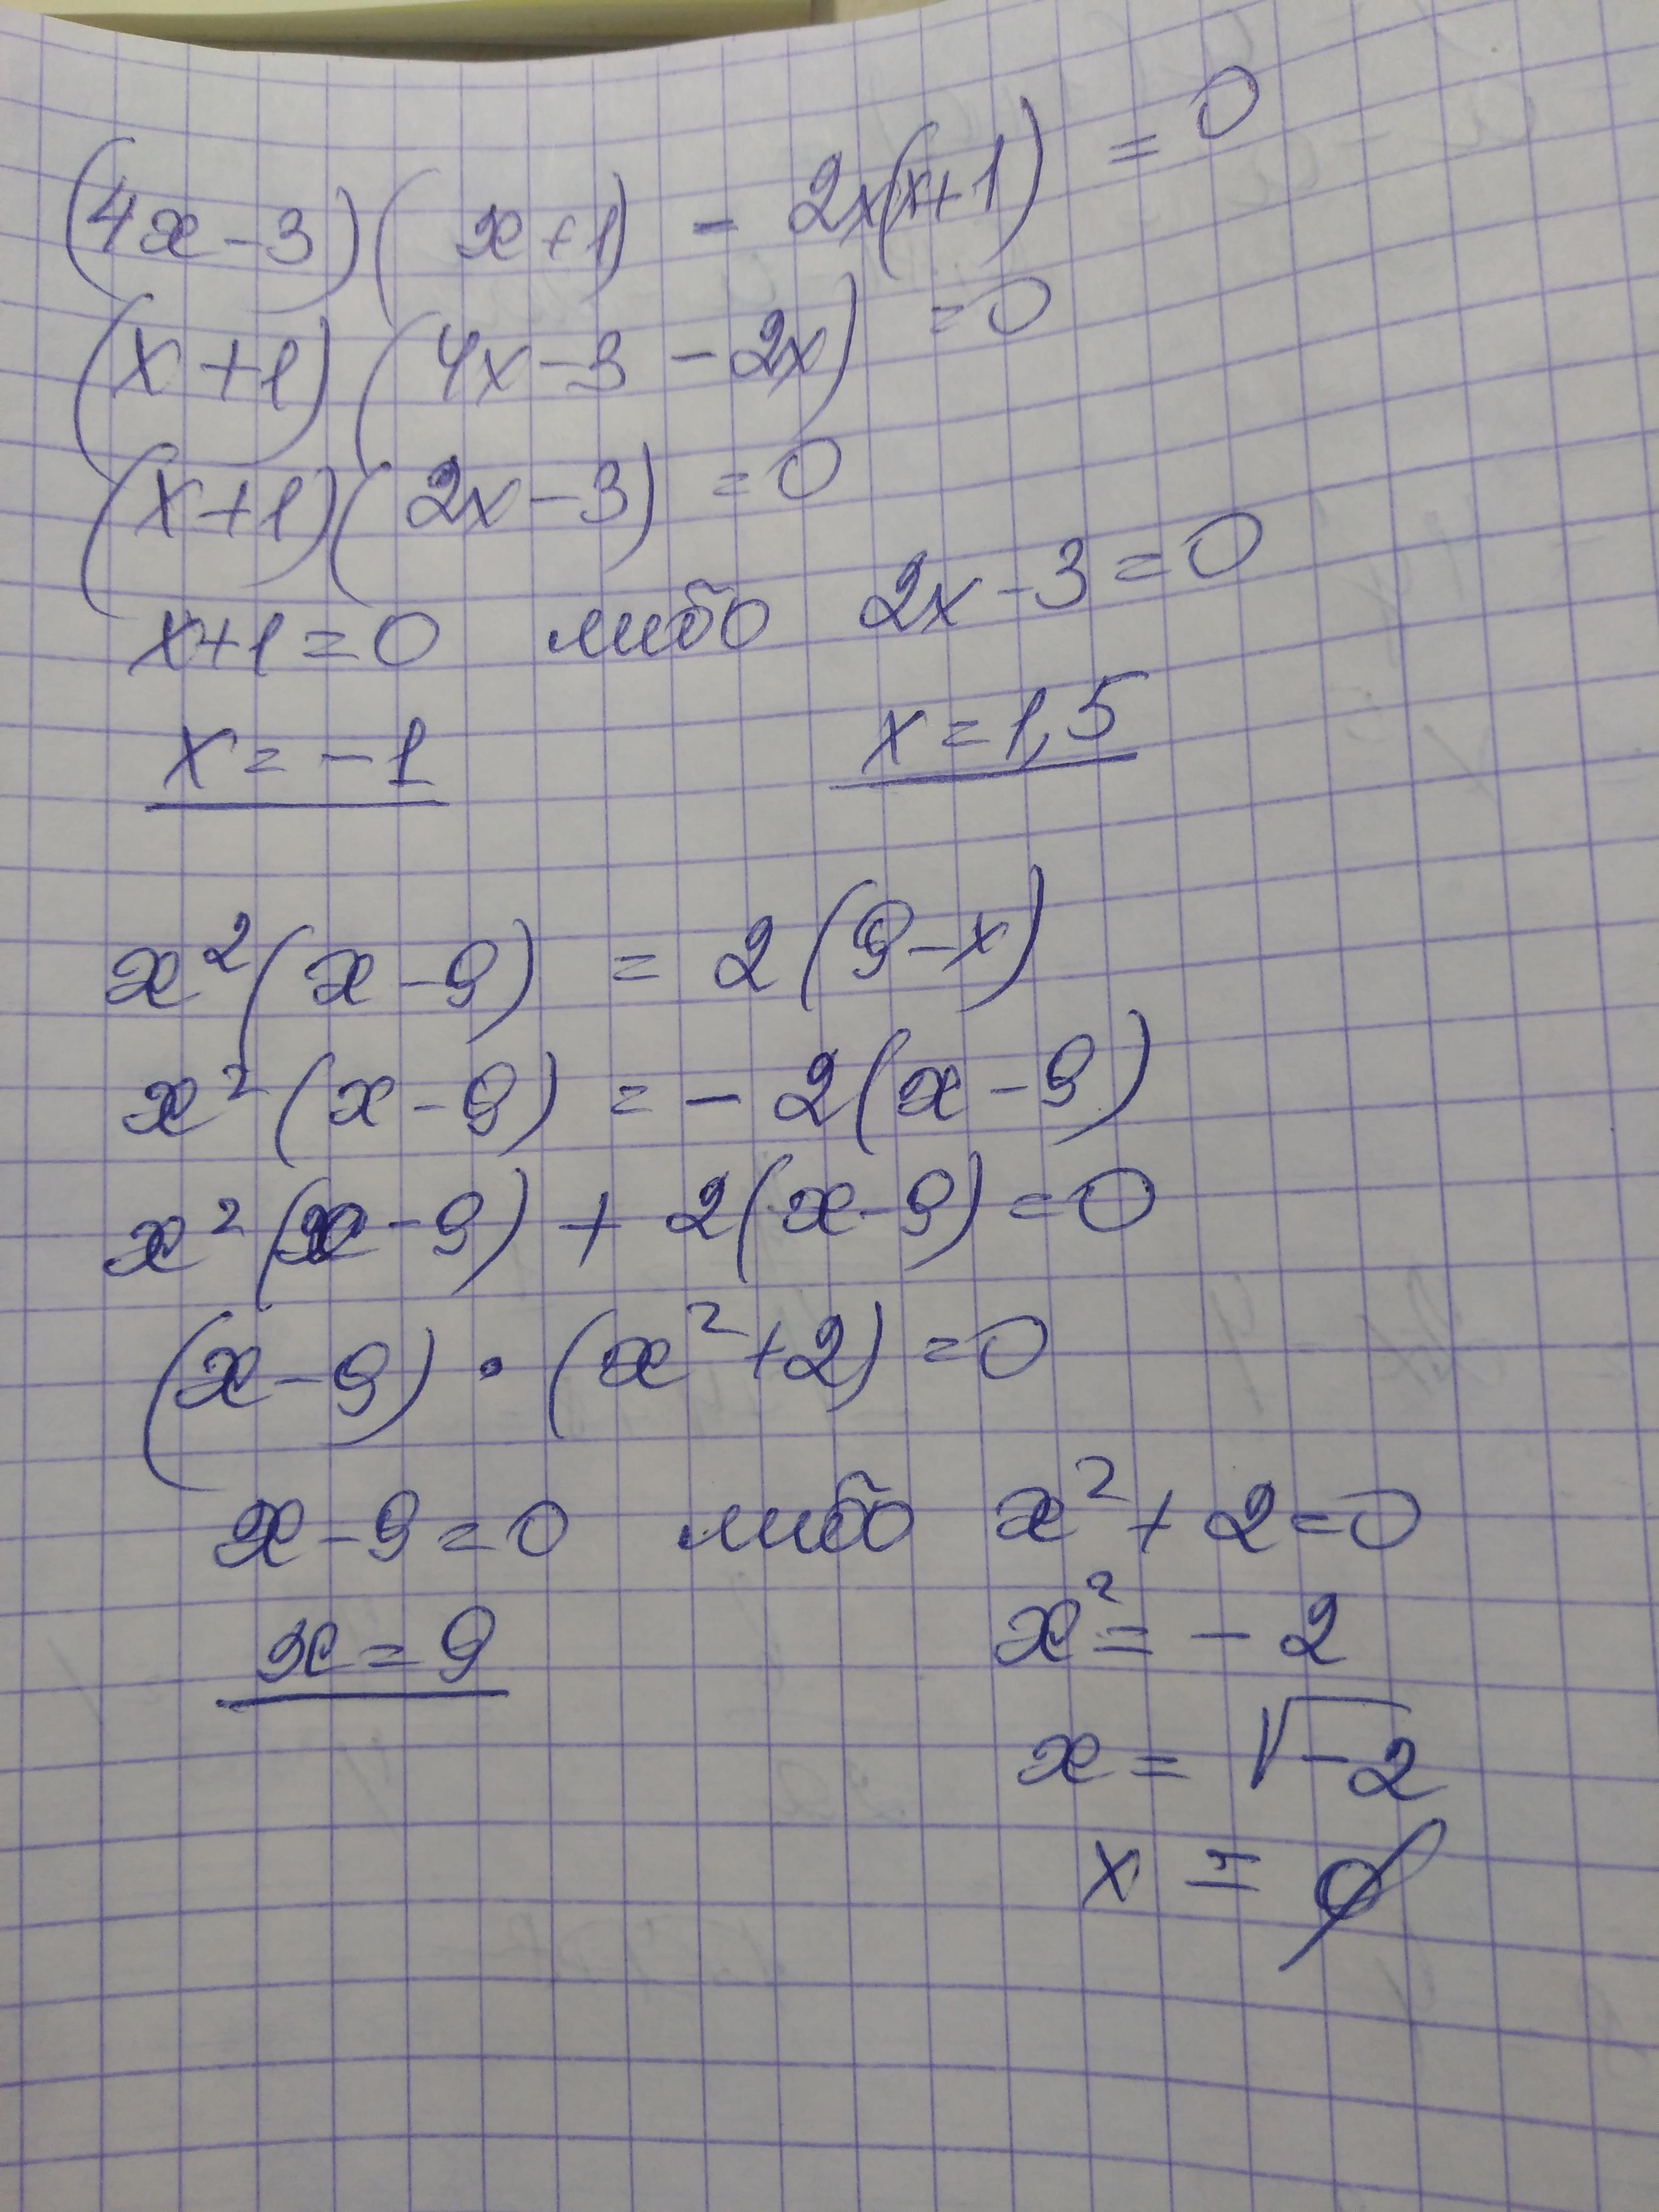 (4x-3)(x+1) - 2x(x+1) = 0
(x+1)(4x-3-2x) = 0
(x+1)(2x-3) = 0
x+1=0 либо 2x-3=0
x=-1 x=1,5
x²(x-9) = 2(9-x)
x²(x-9) = -2(x-9)
x²(x-9) + 2(x-9) = 0
(x-9)·(x²+2) = 0
x-9=0 либо x²+2=0
x=9 x²=-2
x=√-2
x=∅